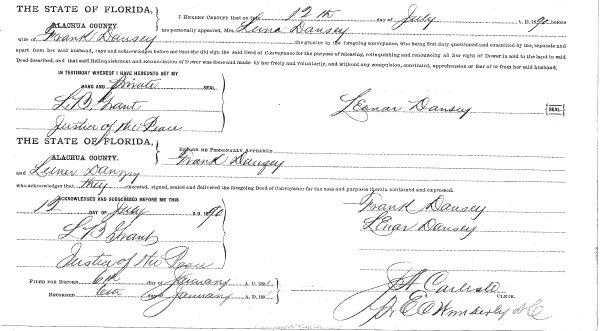 THE STATE OF FLORIDA,
ALACHUA COUNTY.
I HEREBY CERTIFY that on this 12th day of July A. D. 1890 before
me personally appeared, Mrs. Dansey
wife of Frank Dansey the grantor in the foregoing conveyance, who being first duly questioned and examined by me, separate and
apart from her said husband, says and acknowledges before me that she did sign the said Deed of Conveyance for the purpose of releasing, relinquishing and renouncing all her right of Dower in and to the land in said
Deed described, and that said Relinquishment and Renunciation of Dower was done and made by her freely and voluntarily, and without any compulsion, constraint, apprehension or fear of or from her said husband.
IN TESTIMONY WHEREOF I HAVE HEREUNTO SET MY
HAND AND private SEAL.
L.B. Grant
Justice of the Peace
Leanar Dansey SEAL.
THE STATE OF FLORIDA,
ALACHUA COUNTY.
BEFORE ME PERSONALLY APPEARED
Frank Dansey
and Dansey
who acknowledges that they executed, signed, sealed and delivered the foregoing Deed of Conveyance for the uses and purposes therein contained and expressed.
ACKNOWLEDGED AND SUBSCRIBED BEFORE ME THIS
12 DAY OF July A. D. 1890
L B Grant
Justice of the Peace
Frank Dansey
Lenar Dansey
FILED FOR RECORD 6th day of January A. D. 189
RECORDED 6th January A. D. 189
J A Carlisle
CLERK.
Pr E C Wimberly D C